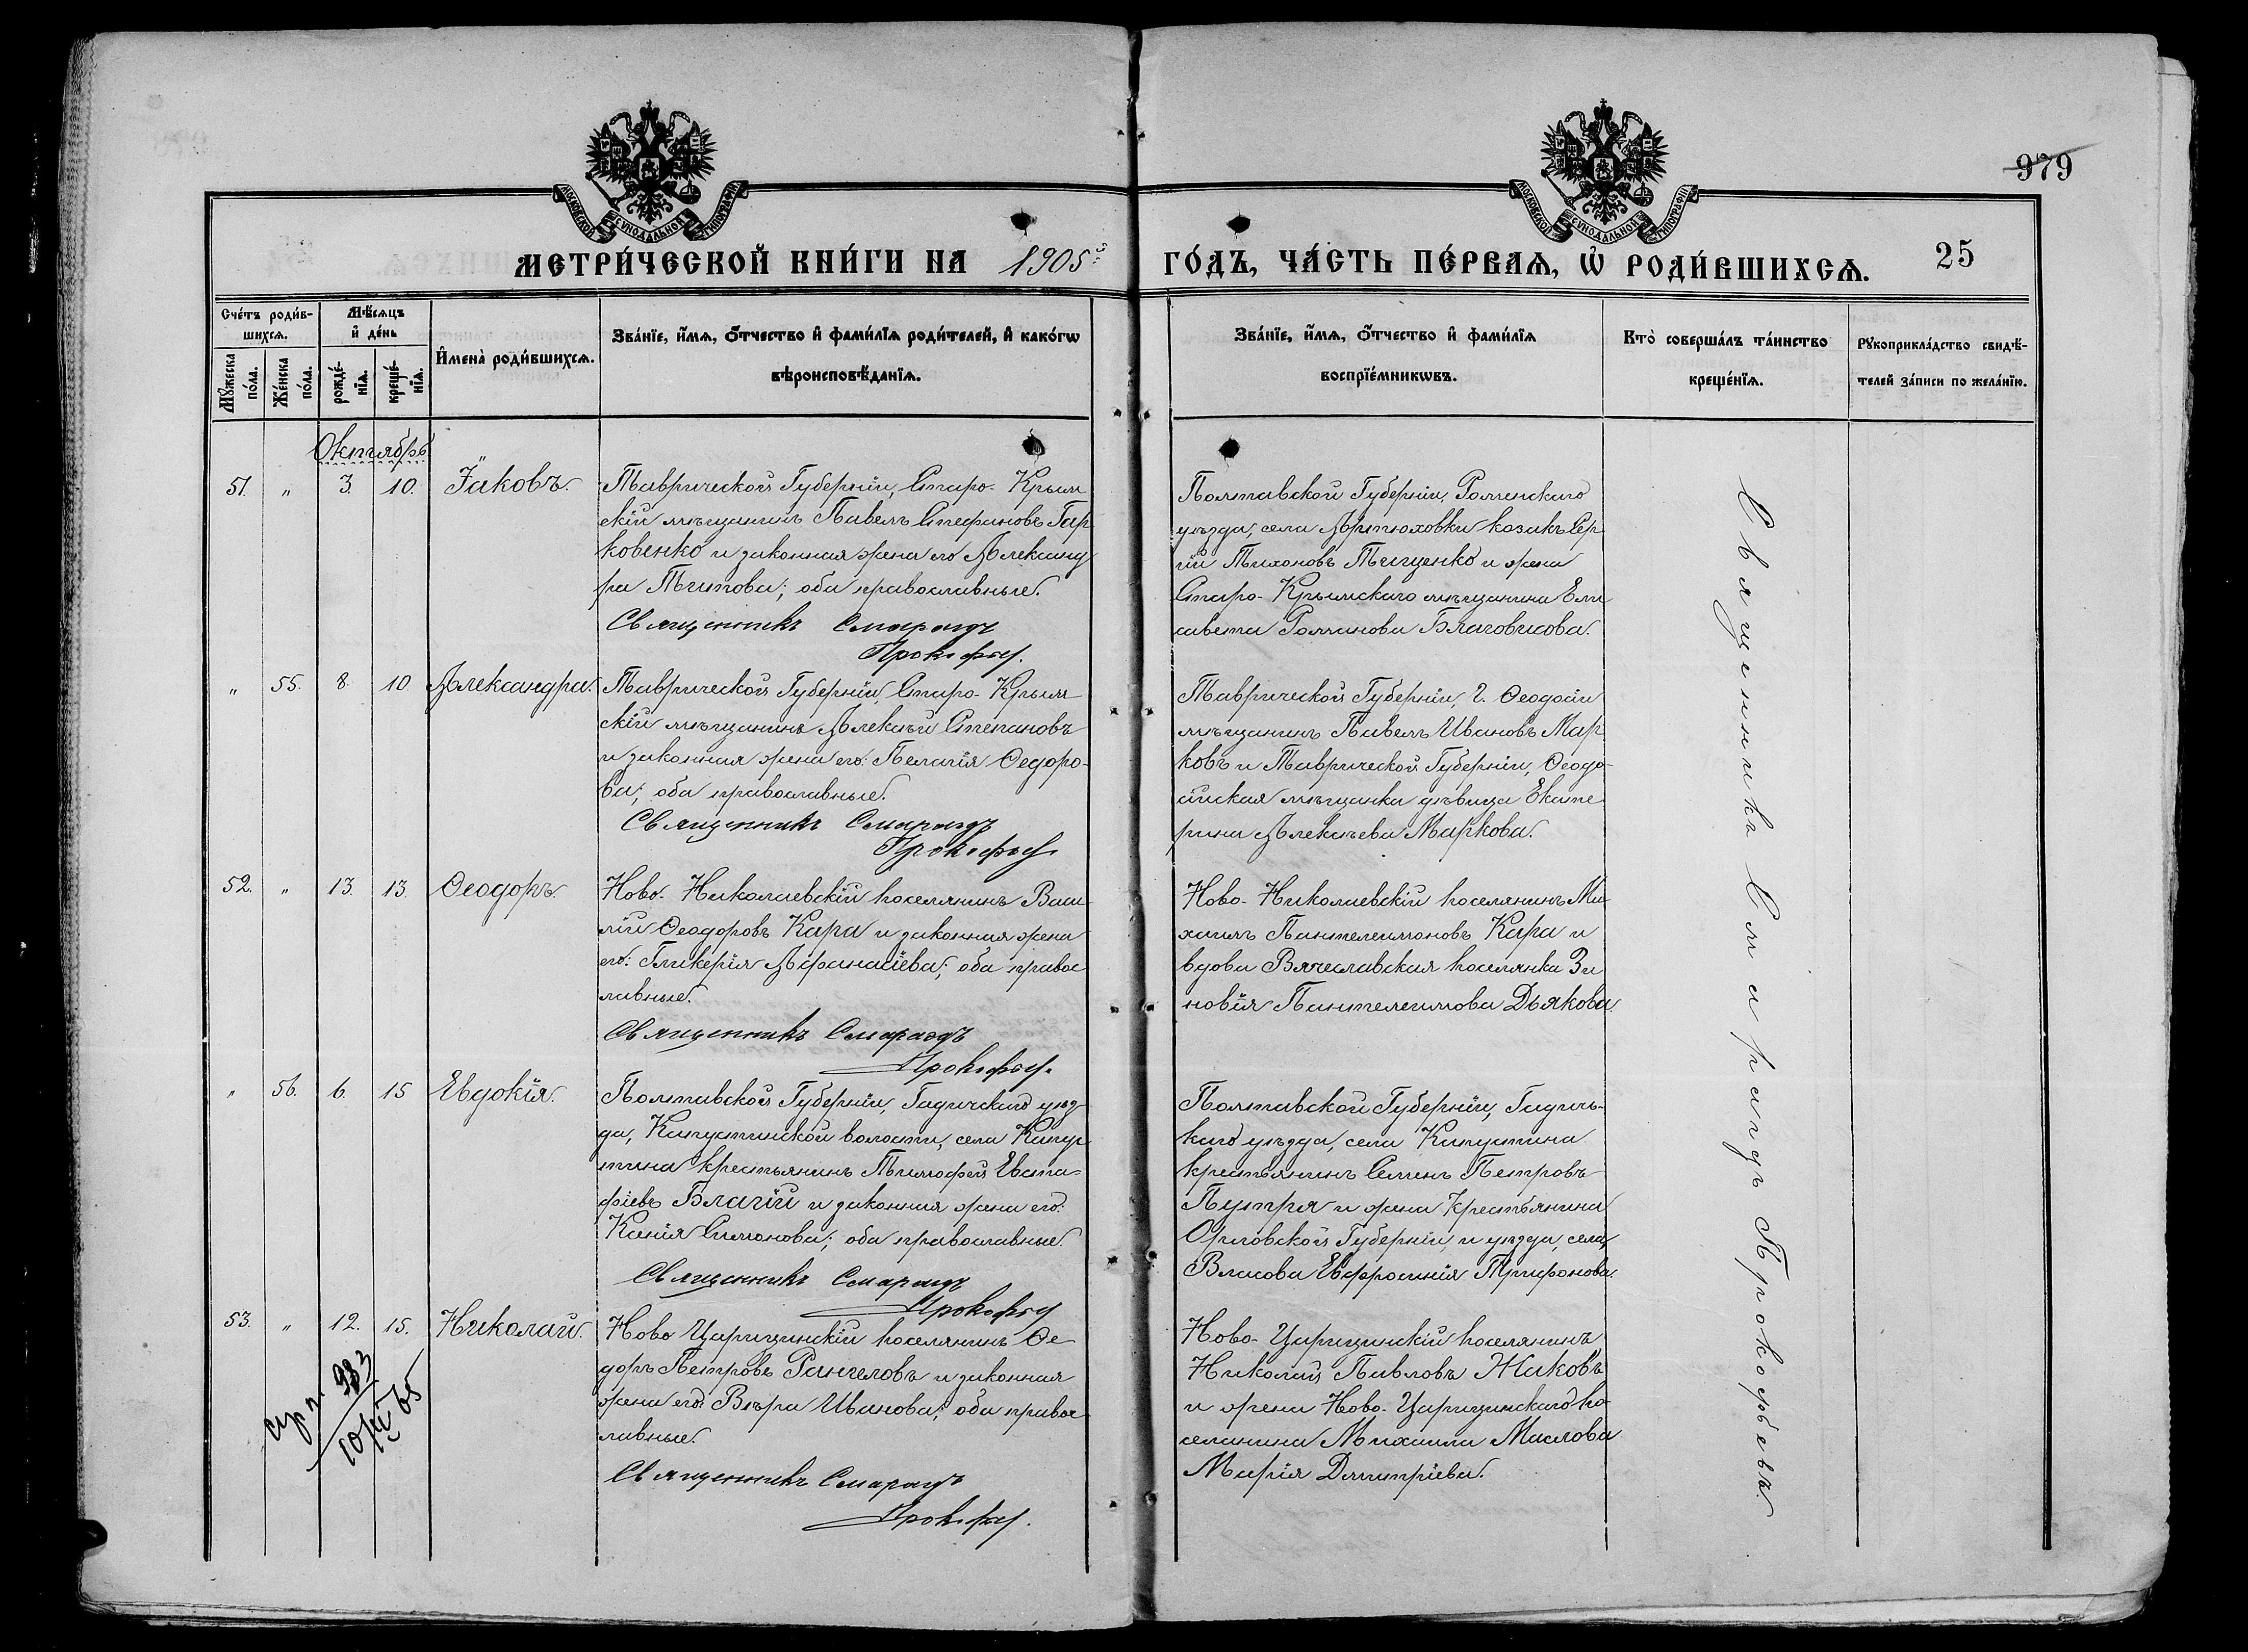 979
МОСКОВСКОЙ СѴНОДАЛЬНОЙ ТИПОГРАФІИ
МОСКОВСКОЙ СѴНОДАЛЬНОЙ ТИПОГРАФІИ
МЕТРИ́ЧЕСКОЙ КНИ́ГИ НА 1905й ГО́ДЪ, ЧА́СТЬ ПЕ́РВАѦ, Ѡ҆ РОДИ́ВШИХСѦ. 25
Сче́тъ роди́в-
шихсѧ.
Мꙋ́жеска
по́ла.
Же́нска
по́ла.
Мѣ́сѧцъ
и҆ де́нь
рожде́-
нїѧ.
креще́-
нїѧ.
И҆мена̀ роди́вшихсѧ.
Зва́нїе, и҆́мѧ, ѻ҆́тчество и҆ фами́лїѧ роди́телей, и҆ како́гѡ
вѣроисповѣ́данїѧ.
Зва́нїе, и҆́мѧ, ѻ҆́тчество и҆ фами́лїѧ
воспрїе́мникѡвъ.
Кто̀ соверша́лъ та́инство
креще́нїѧ.
Рꙋкоприкла́дство свидѣ́-
телей за́писи по жела́нїю.
Октябрь
51. " 3. 10. Іаковъ.
Таврической Губерніи, Старо-Крым
скій мѣщанинъ Павелъ Стефановъ Гар
ковенко и законная жена его Александ
ра Титова; оба православные.
Священникъ Смарагдъ
Прокофьев.
Полтавской Губерніи, Роменскаго
уѣзда, села Артюховки козакъ Сер
гій Тихоновъ Тищенко и жена
Старо-Крымскаго мѣщанина Ели
савета Романова Благовисова.
" 55. 8. 10 Александра.
Таврической Губерніи, Старо-Крым
скій мѣщанинъ Алексѣй Степановъ
и законная жена его: Пелагія Ѳедоро-
ва; оба православные.
Священникъ Смарагдъ
Прокофьев
Таврической Губерніи, г. Ѳеодосіи
мѣщанинъ Павелъ Ивановъ Мар
ковъ и Таврической Губерніи, Ѳеодо-
сійская мѣщанка дѣвица Екате
рина Алексѣева Маркова.
52. " 13. 13. Ѳеодоръ.
Ново-Николаевскій поселянинъ Васи-
лій Ѳеодоровъ Кара и законная жена
его: Гликерія Афанасіева; оба правос
лавные.
Священникъ Смарагдъ
Прокофьев.
Ново-Николаевскій поселянинъ Ми-
хаилъ Пантелеимоновъ Кара и
вдова Вячеславская поселянка Зи
новія Пантелеимова Дьякова.
" 56. 6. 15 Евдокія.
Полтавской Губерніи, Гадичскаго уѣз-
да, Капустинской волости, села Капус
тина крестьянинъ Тимофей Евста-
фіевъ Благій и законная жена его:
Ксенія Симонова; оба православные.
Священникъ Смарагдъ
Прокофьев
Полтавской Губерніи, Гадичь-
каго уѣзда, села Капустина
крестьянинъ Семенъ Петровъ
Пугря и жена крестьянина
Орловской Губерніи и уѣзда, села
Власова Евфросинія Трифонова.
53. " 12. 15. Николай.
Ново Царицинскій поселянинъ Ѳе-
доръ Петровъ Рангеловъ и законная
жена его: Вѣра Иванова; оба правос
лавные.
Священникъ Смарагдъ
Прокофьев.
Ново-Царицинскій поселянинъ
Николай Павловъ Жаковъ
и жена Ново-Царицинскаго по-
селянина Михаила Маслова
Марія Димитріева.
983
Священникъ Смарагдъ Прокофьевъ.